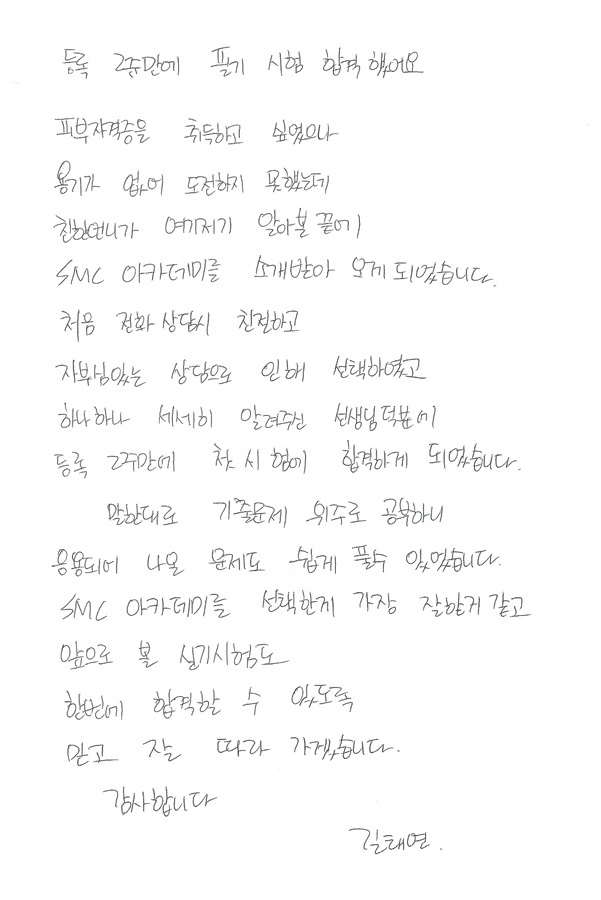 등록 2주만에 필기 시험 합격 했어요
피부자격증을 취득하고 싶었으나
용기가 없어 도전하지 못했는데
친한언니가 여기저기 알아본 끝에
SMC 아카데미를 소개받아 오게 되었습니다.
처음 전화 상담시 친절하고
자부심있는 상담으로 인해 선택하였고
하나하나 세세히 알려주신 선생님덕분에
등록 2주만에 첫 시험에 합격하게 되었습니다.
말한대로 기출문제 위주로 공부하니
응용되어 나올 문제도 쉽게 풀수 있었습니다.
SMC 아카데미를 선택한게 가장 잘한거 같고
앞으로 볼 실기시험도
한번에 합격할 수 있도록
믿고 잘 따라 가겠습니다.
감사합니다
길태연.